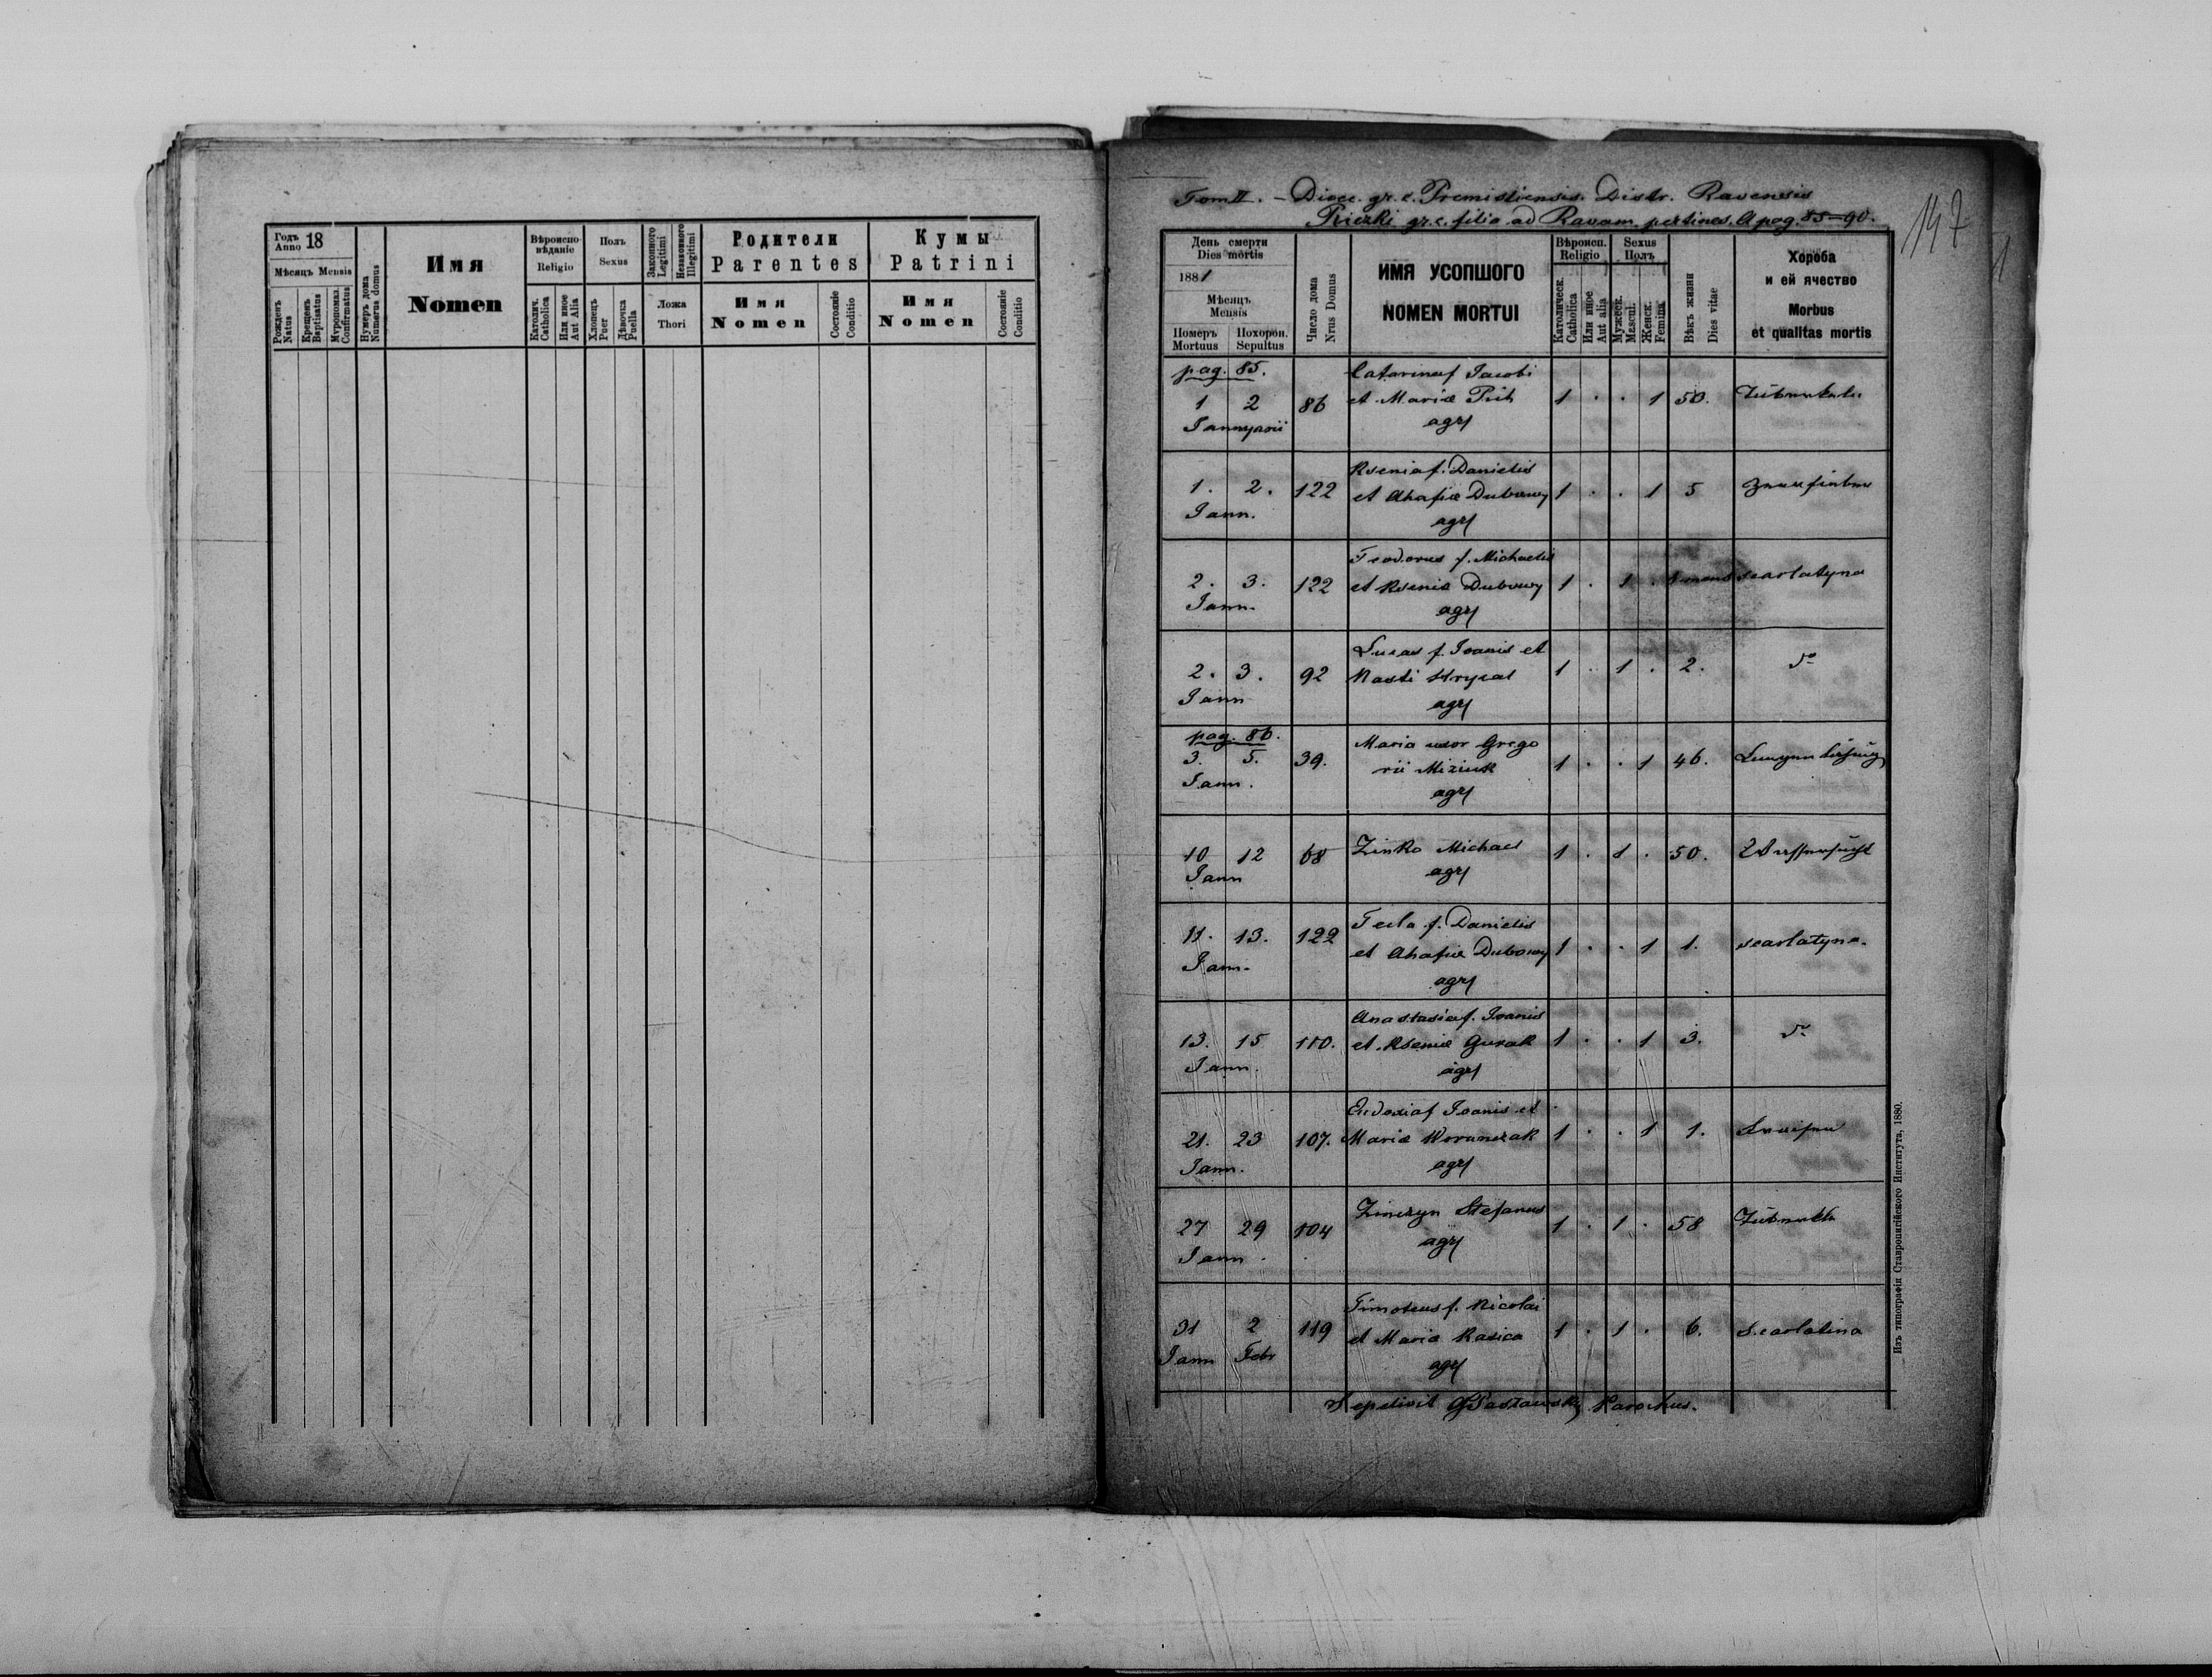 Годъ Anno 18
Мѣсяцъ Mensis
Рожденъ Natus
Крещенъ Baptisatus
Мѵропомаз. Confirmatus
Нумеръ дома Numerus domus
Имя
Nomen
Вѣроиспо-
вѣданіе
Religio
Католич. Catholica
Или иное Aut Alia
Полъ
Sexus
Хлопецъ Puer
Дѣвочка Puella
Законного Legitimi
Незаконного Illegitimi
Ложа
Thori
Родители
Parentes
Имя
Nomen
Состояніе Conditio
Кумы
Patrini
Имя
Nomen
Состояніе Conditio
Tom II. – Dioec. gr. c. Premisliensis. Distr. Ravensis
gr. c. filia ad Ravam pertinens. A pag. 85–90.
147
1
День смерти
Dies mortis
1881
Мѣсяцъ
Mensis
Померъ Mortuus
Похорон. Sepultus
Число дома
Nrus Domus
ИМЯ УСОПШОГО
NOMEN MORTUI
Вѣроисп.
Religio
Католическ. Catholica
Или иное Aut alia
Sexus
Полъ
Мужеск. Mascul.
Женск. Femina
Вѣкъ жизни
Dies vitae
Хороба
и ей ячество
Morbus
et qualitas mortis
pag. 85.
Catarina f. Jacobi
1 2 86 et Mariæ 1 . . 1 50.
Jannyarii agr
Ksenia f. Danielis
1. 2. 122 et Ahafiæ Dubowy 1 . . 1 5
Jann. agr
Teodorus f. Michaelis
2. 3. 122 et Kseniæ Dubowy 1 . 1 . mens scarlatyna
Jann. agr
Lucas f. Joanis et
2. 3. 92 Nasti Hrycal 1 . 1 . 2. do
Jann agr
pag. 86.
Maria uxor Grego
3. 5. 39. rii Miziuk 1 . . 1 46.
Jann. agr
10 12 68 Zinko Michael 1 . 1 . 50. Wassersucht
Jann agr
Tecla f. Danielis
11. 13. 122 et Ahafiæ Dubowy 1 . . 1 1. scarlatyna.
Jann. agr
Anastasia f. Joanis
13. 15 110. et Kseniæ Gurak 1 . . 1 3. do
Jann. agr
Eudoxia f Joanis et
21. 23 107. Mariæ Woranczak 1 . . 1 1.
Jann. agr
27 29 104 Zinczyn Stefanus 1 . 1 . 58
Jann. agr
Timoteus f. Nicolai
31 2 119 et Mariæ Kasica 1 . 1 . 6. scarlatina
Jann Febr agr
Sepelivit Parochus.
Изъ типографіи Ставропигійского Института, 1880.